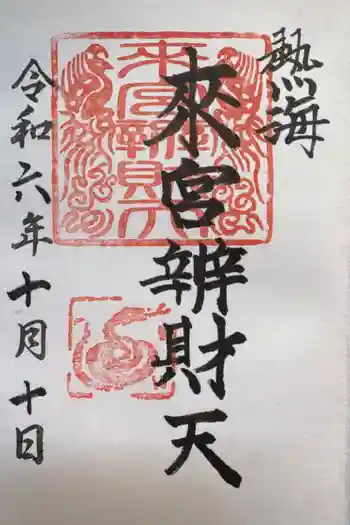 熱海
來宮辨財天
令和六年十月十日
來宮辨財天